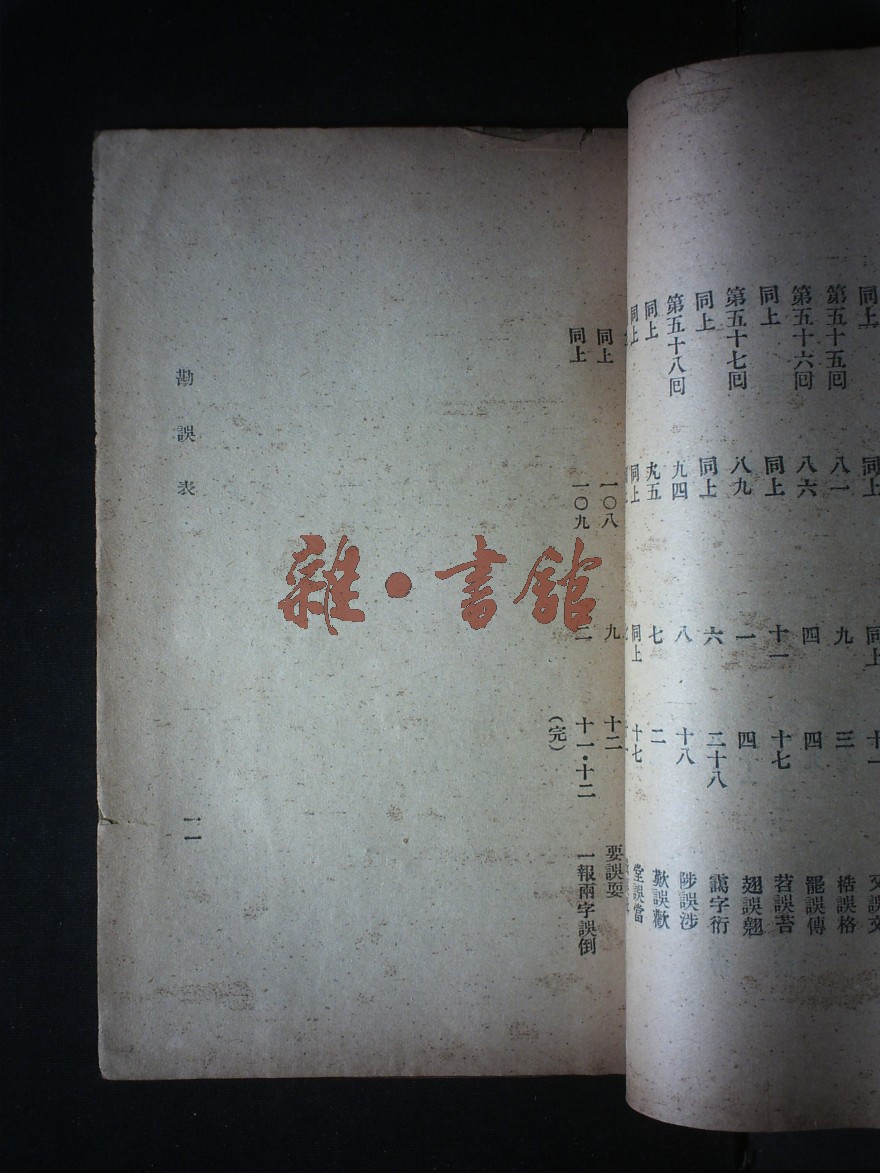 同上 同上 十一
第五十五回 八一 九 三 梏誤格
第五十六回 八六 四 四 罷誤傳
同上 同上 十一 十七 苕誤苦
第五十七回 八九 一 四 翅誤翹
同上 同上 六 二十八 靄字衍
第五十八回 九四 八 十八 陟誤涉
同上 九五 七 二 歎誤歡
同上 同上 同上 十七 堂誤當
同上 一〇八 九 十二 要誤耍
同上 一〇九 二 十一·十二 一報兩字誤倒
(完)
勘誤表
一一
雜·書館